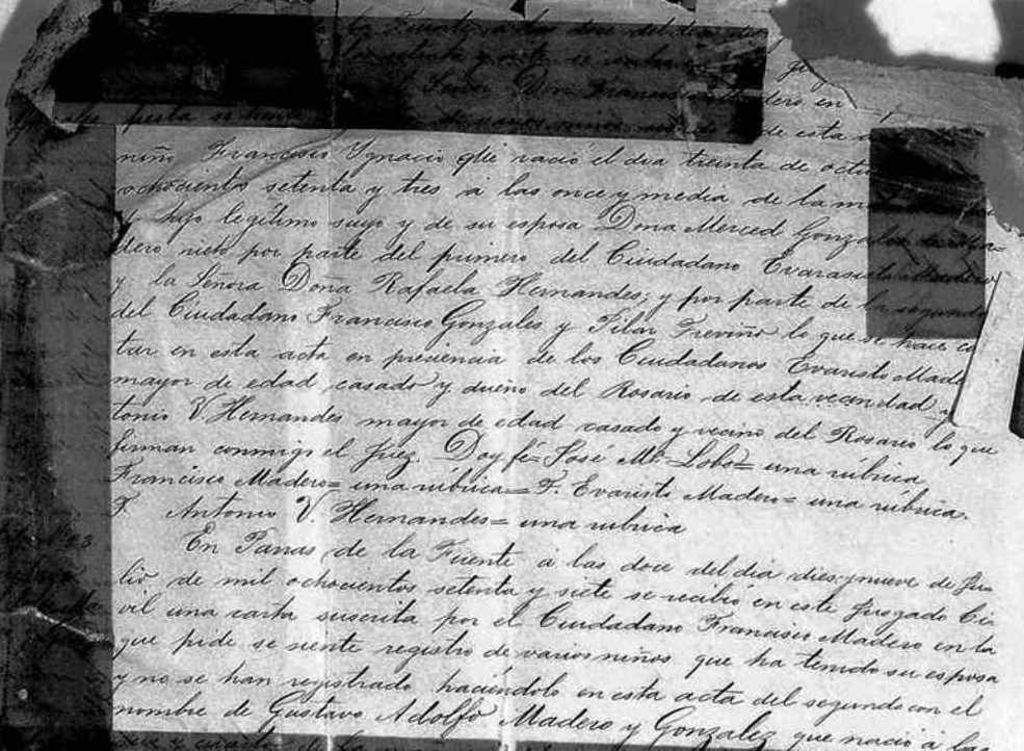 la Fuente a las doce del dia
se
Señor Don Francisco Madero en
de esta
niño Francisco Ygnacio que nació el dia treinta de octu
ochocientos setenta y tres a las once y media de la m
y hijo legítimo suyo y de su esposa Doña Merced Gonzales de Ma=
dero nieto por parte del primero del Ciudadano Evaristo Madero
y la Señora Doña Rafaela Hernandes; y por parte de la segunda
del Ciudadano Francisco Gonzales y Pilar Treviño lo que se hace co
tar en esta acta en preciencia de los Ciudadanos Evaristo Made
mayor de edad casado y dueño del Rosario de esta vecindad y
tonio V. Hernandes mayor de edad casado y vecino del Rosario lo que
firman conmigo el Juez. Doy fé= José Ma. Lobo= una rúbrica
Francisco Madero= una rúbrica= T. Evaristo Madero= una rúbrica.
T. Antonio V. Hernandes= una rubrica
En Parras de la Fuente á las doce del dia diesynueve de Ju
lio de mil ochocientos setenta y siete se recibió en este Juzgado Ci
vil una carta suscrita por el Ciudadano Francisco Madero en la
que pide se siente registro de varios niños que ha tenido su esposa
y no se han registrado haciéndolo en esta acta del segundo con el
nombre de Gustavo Adolfo Madero y Gonzalez que nació á l